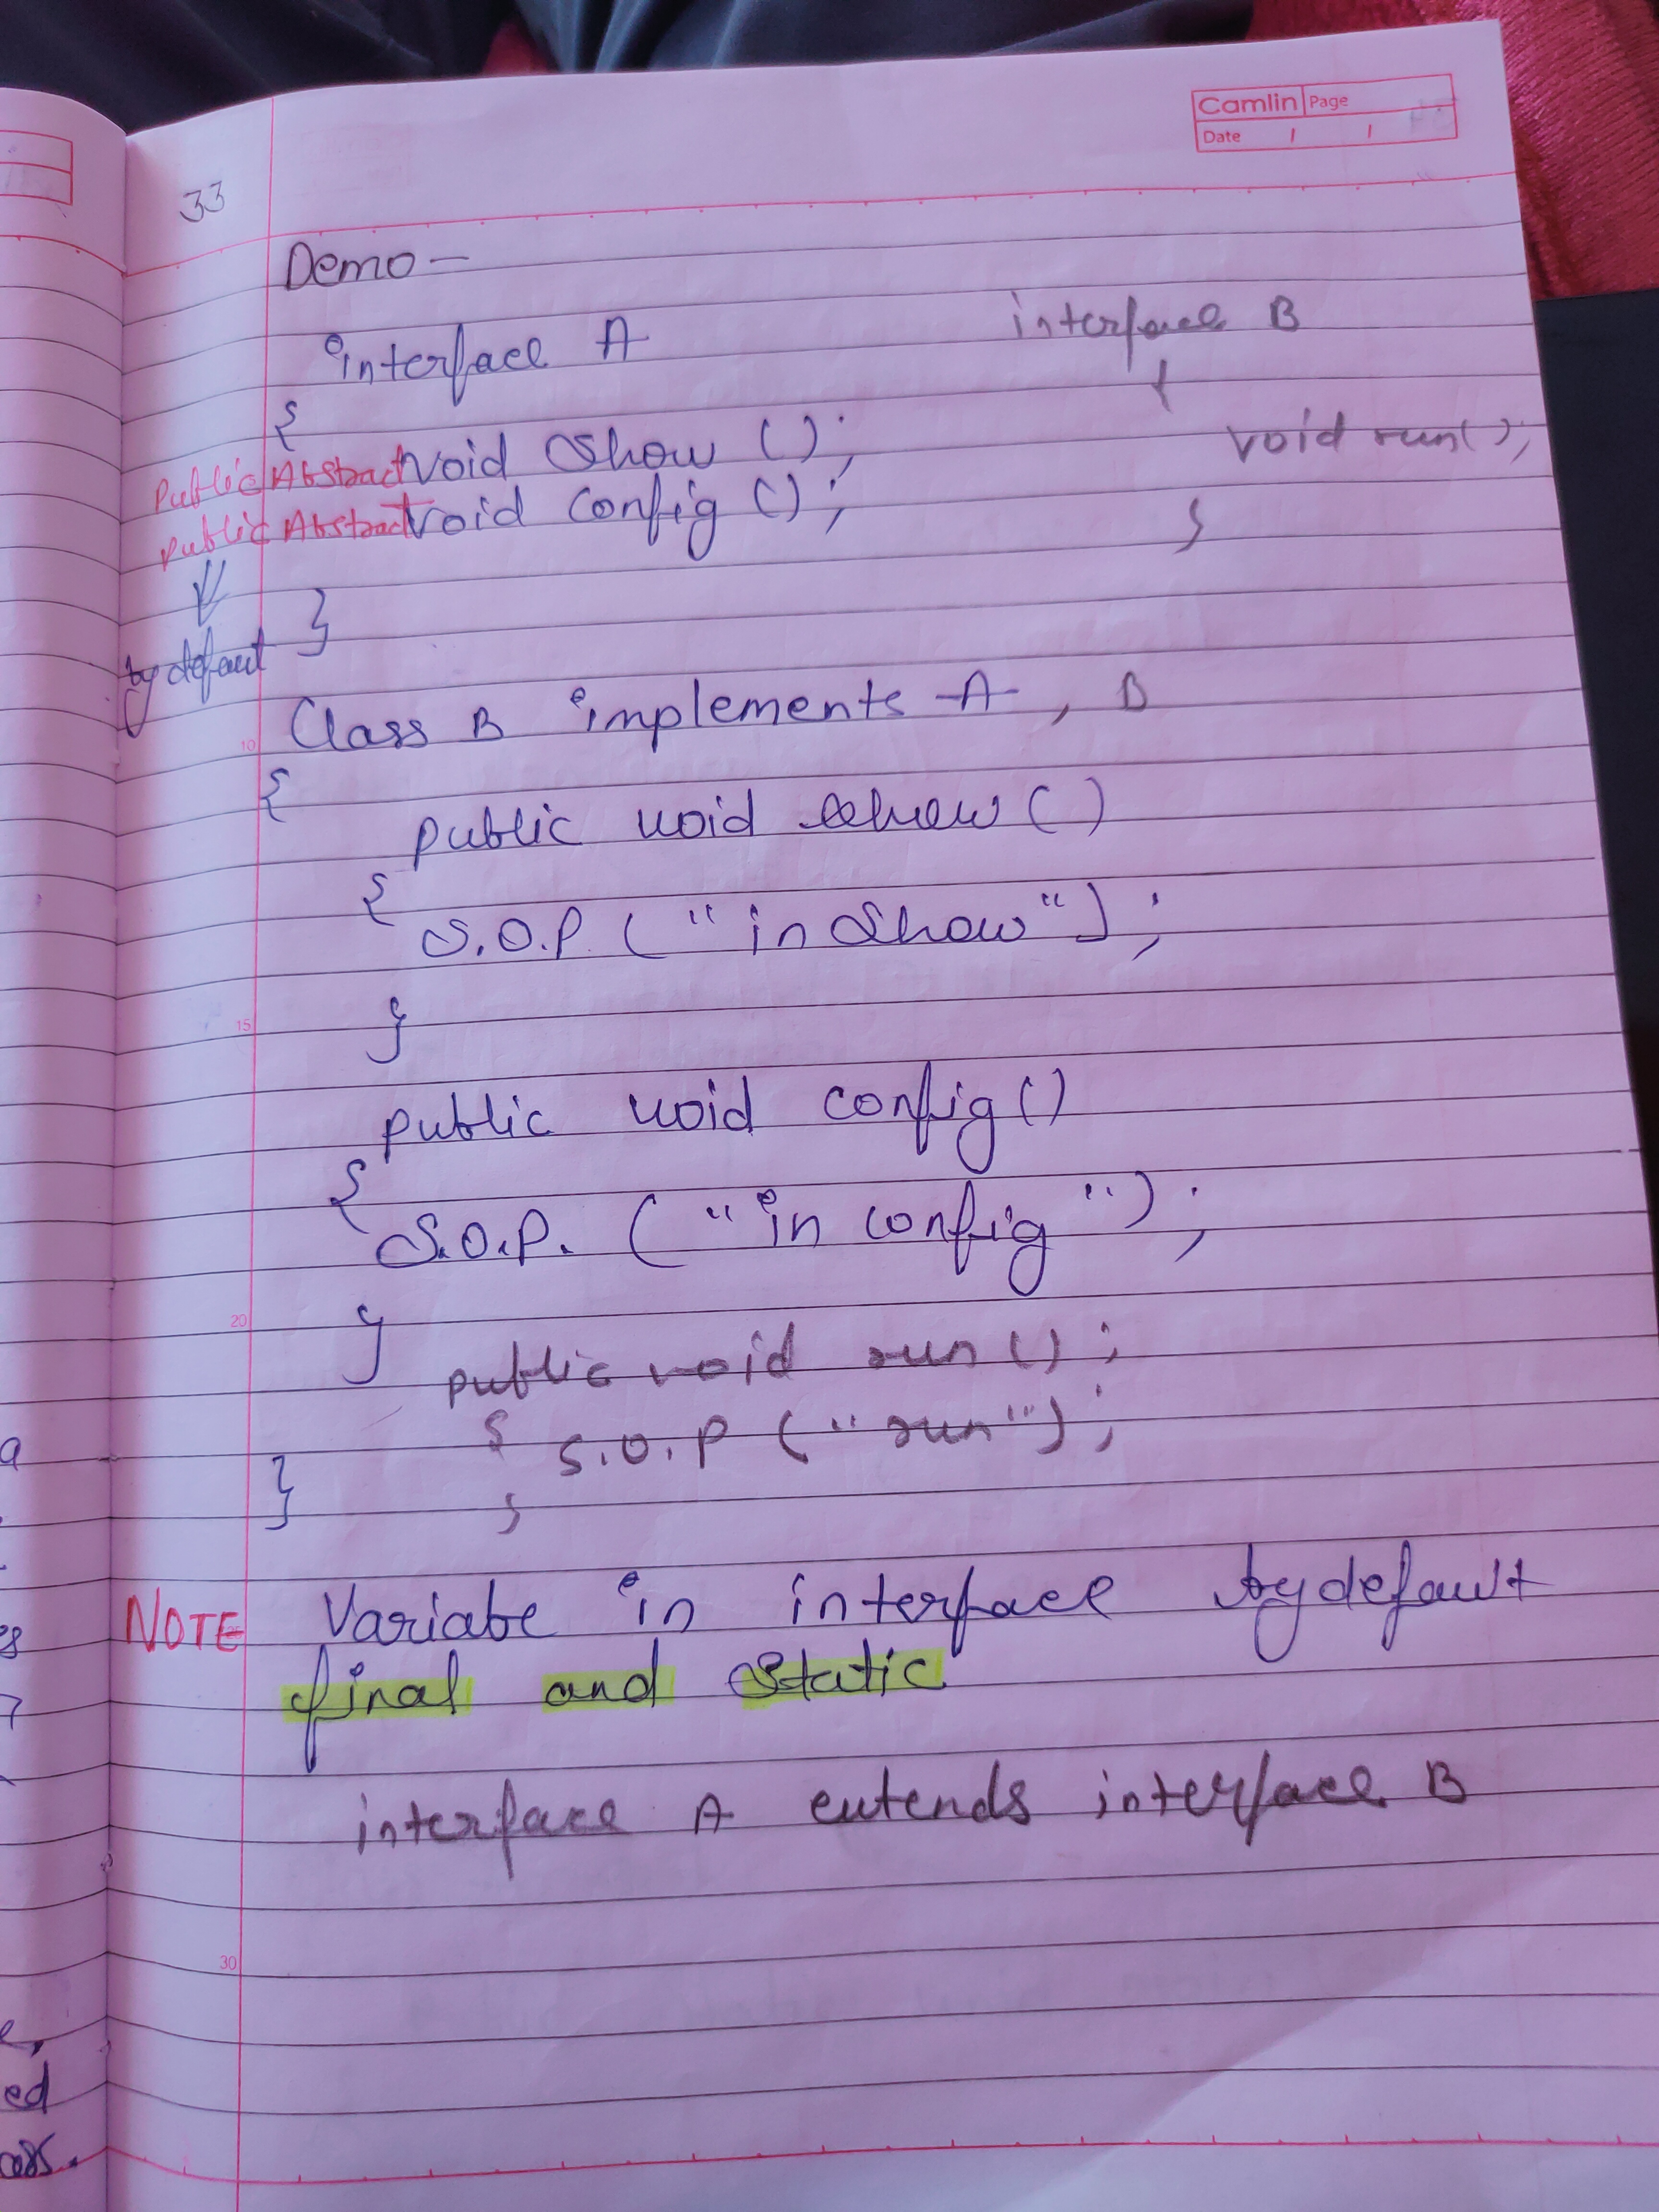 Camlin Page
Date / /
33
Demo —
interface A
{
Public Abstract void Show ();
public Abstract void config ();
by defaut
}
interface B
{
void run();
}
Class B implements A, B
10
{
public void show ()
{
S.O.P. ("in Show");
}
15
public void config ()
{
S.O.P. ("in config");
}
20
public void run ();
{ S.O.P ("run");
}
}
NOTE Variabe in interface by default
final and static
interface A extends interface B
30
e,
ed